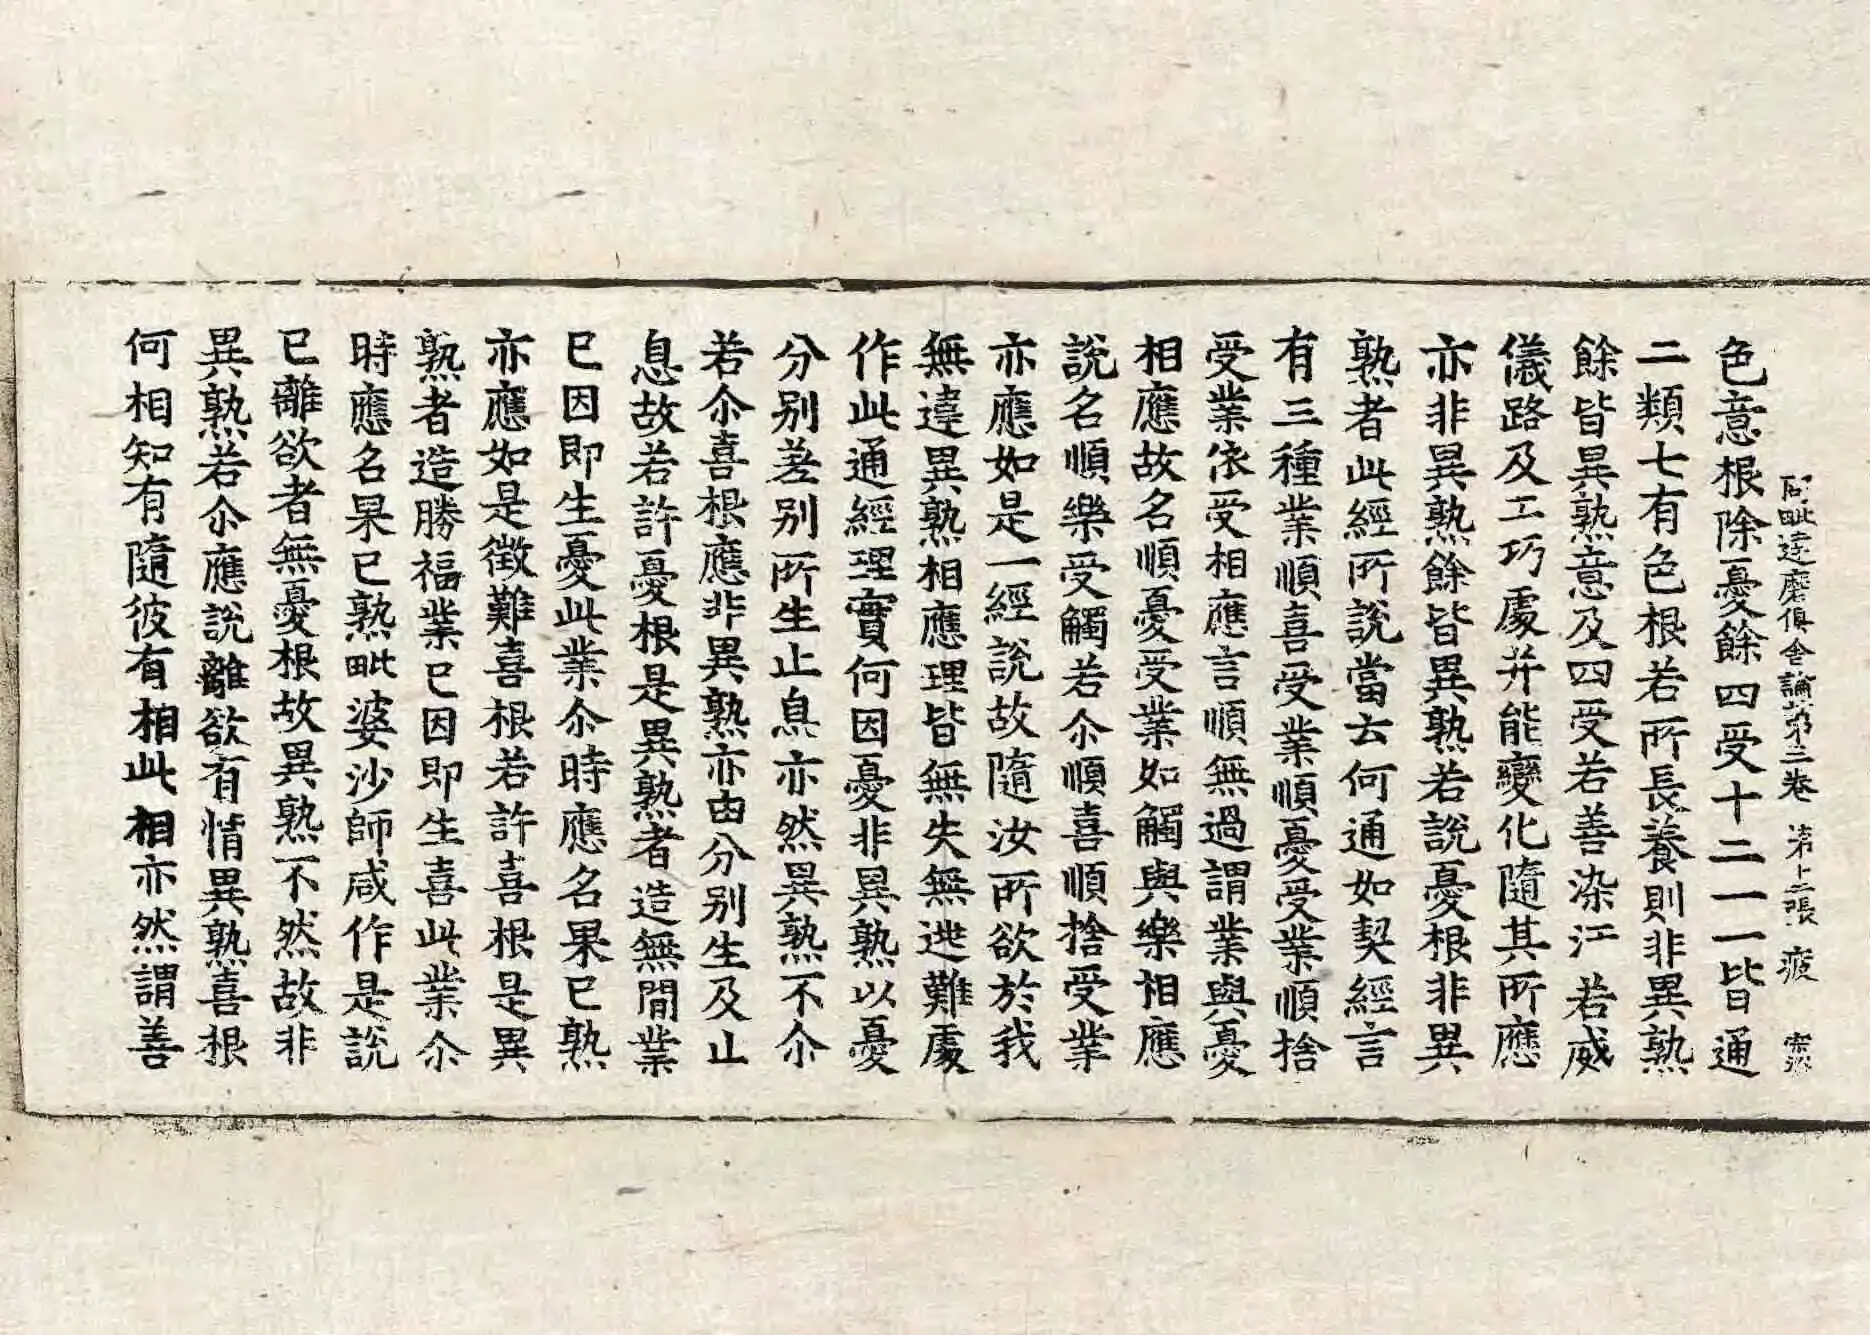 阿毗達磨俱舍論第三卷 第十二張 疲
色意根除憂餘四受十二一一皆通
二類七有色根若所長養則非異熟
餘皆異熟意及四受若善染汙若威
儀路及工巧處并能變化隨其所應
亦非異熟餘皆異熟若說憂根非異
熟者此經所說當云何通如契經言
有三種業順喜受業順憂受業順捨
受業依受相應言順無過謂業與憂
相應故名順憂受業如觸與樂相應
說名順樂受觸若尒順喜順捨受業
亦應如是一經說故隨汝所欲於我
無違異熟相應理皆無失無逃難處
作此通經理實何因憂非異熟以憂
分別差別所生止息亦然異熟不尒
若尒喜根應非異熟亦由分別生及止
息故若許憂根是異熟者造無間業
已因即生憂此業尒時應名果已熟
亦應如是徵難喜根若許喜根是異
熟者造勝福業已因即生喜此業尒
時應名果已熟毗婆沙師咸作是說
已離欲者無憂根故異熟不然故非
異熟若尒應說離欲有情異熟喜根
何相知有隨彼有相此相亦然謂善